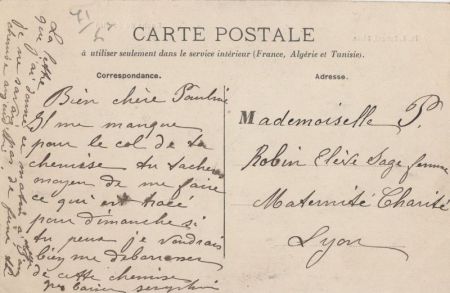 CARTE POSTALE
à utiliser seulement dans le service intérieur (France, Algérie et Tunisie).
Correspondance.
Adresse.
Bien chère Pauline
Il me manque
pour le col de ta
chemise tu
moyen de me faire
ce qui est tracé
pour dimanche si
tu peux je voudrais
bien me débarrasser
de cette chemise
Mademoiselle P.
Robin Elève Sage femme
Maternité Charité
Lyon
La lettre
que j'ai donné ce matin à
je ne sais pas de
chemise